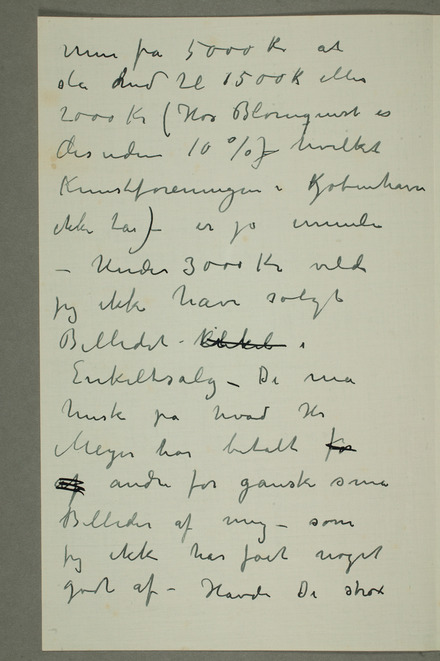 min på 5000 Kr at
slå ned til 1500 K eller
2000 Kr (Hos Blomquist es
desuden 10 %) hvilket
Kunstforeningen i Kjøbenhavn
ikke har) – er jo
– Under 3000 Kr vilde
jeg ikke have solgt
Billedet – i
Enkeltsalg – De må
husk på hvad Hr
Meyer har betalt for
af andre for ganske små
Billeder af mig – som
jeg ikke har fået noget
godt af – Havde De strax